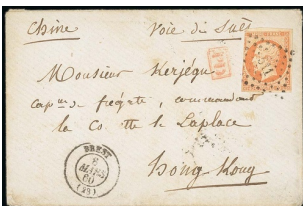 Chine Voie de Suès
Monsieur Kerjégu
cap.ne de frégate, commandant
la Co. tte le Laplace
Hong Kong
BREST
6
MARS
60
(28)